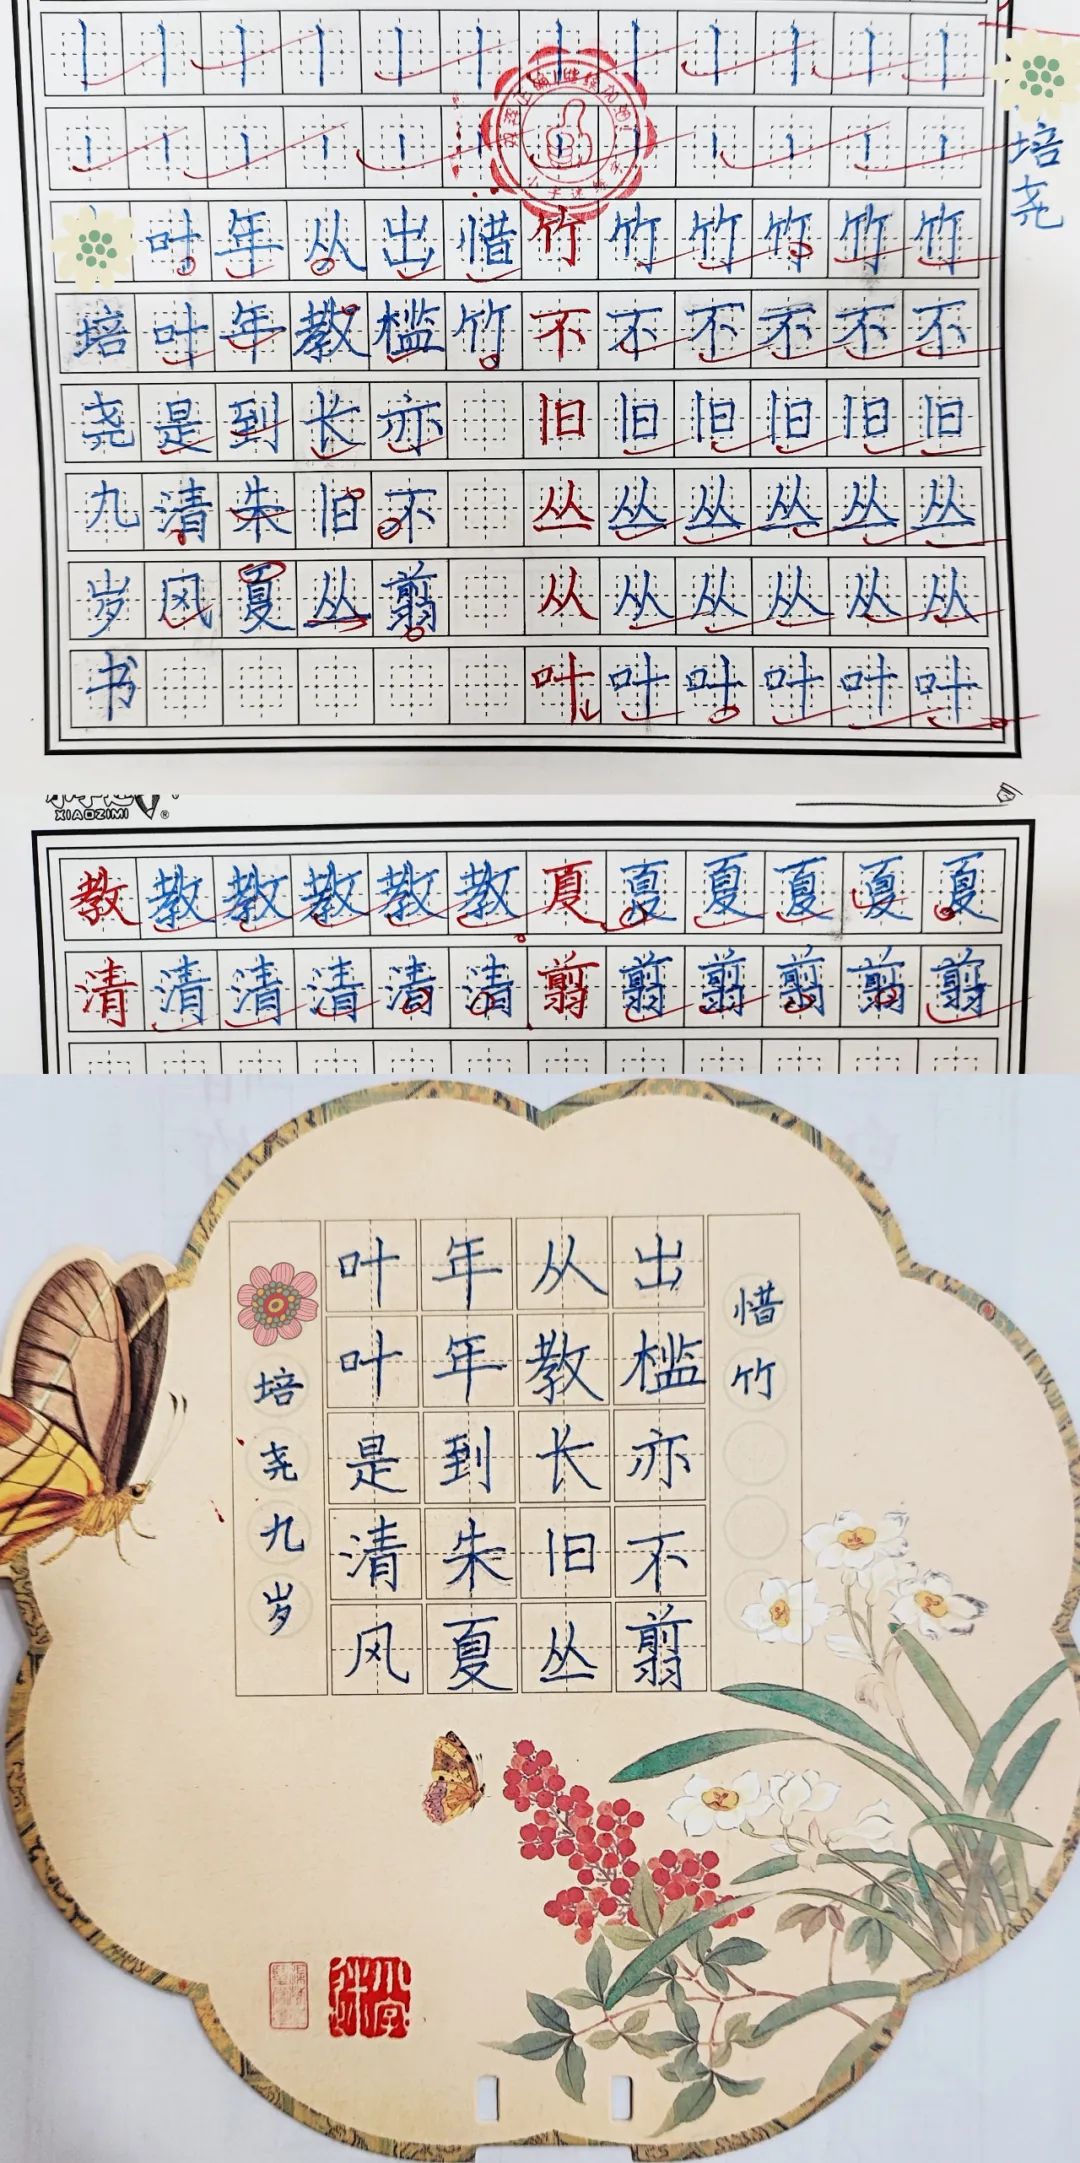 丨丨丨丨丨丨丨丨丨丨丨丨
丨丨丨丨丨丨丨丨丨丨丨丨
培尧
叶年从出惜竹竹竹竹竹竹
培叶年教槛竹不不不不不不
尧是到长亦旧旧旧旧旧旧
九清朱旧不丛丛丛丛丛丛
岁风夏丛翦从从从从从从
书叶叶叶叶叶叶
XIAOZIMI®
教教教教教教夏夏夏夏夏夏
清清清清清清翦翦翦翦翦翦
惜竹
出槛亦不翦
从教长旧丛
年年到朱夏
叶叶是清风
培尧九岁